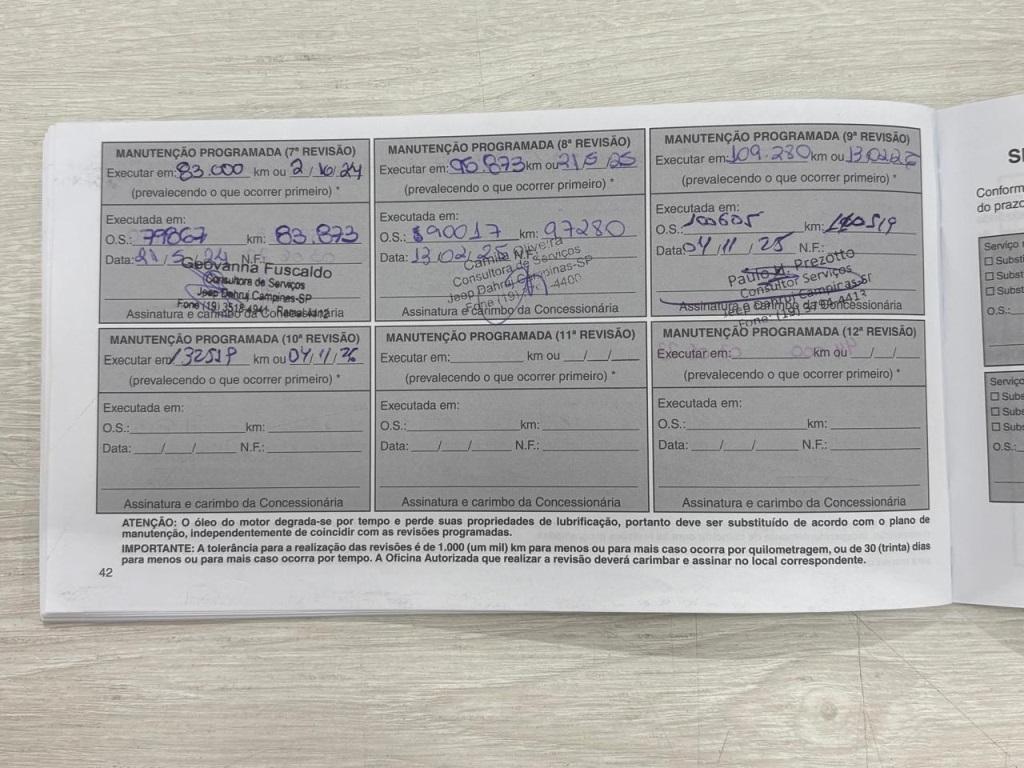 MANUTENÇÃO PROGRAMADA (7ª REVISÃO)
Executar em: 83.000 km ou 2/10/24
(prevalecendo o que ocorrer primeiro) *
Executada em:
O.S.: 79867 km: 83.873
Data: 21/5/24 N.F.:
Geovanna Fuscaldo
Consultora de Serviços
Jeep Dahruj Campines-SP
Assinatura e carimbo da Concessionária
MANUTENÇÃO PROGRAMADA (8ª REVISÃO)
Executar em: 95.873 km ou 21/5/25
(prevalecendo o que ocorrer primeiro) *
Executada em:
O.S.: 90017 km: 97280
Data: 13/02/25 N.F.:
Camila Oliveira
Consultora de Serviços
Jeep Dahruj Campinas-SP
Fone (19) -4400
Assinatura e carimbo da Concessionária
MANUTENÇÃO PROGRAMADA (9ª REVISÃO)
Executar em: 109.280 km ou 13/02/26
(prevalecendo o que ocorrer primeiro) *
Executada em:
O.S.: 100605 km: 120519
Data: 04/11/25 N.F.:
Paulo H. Prezotto
Consultor Serviços
Jeep Dahruj Campinas SP
Assinatura e carimbo da Concessionária
MANUTENÇÃO PROGRAMADA (10ª REVISÃO)
Executar em: 132519 km ou 04/11/26
(prevalecendo o que ocorrer primeiro) *
Executada em:
O.S.: km:
Data: / / N.F.:
Assinatura e carimbo da Concessionária
MANUTENÇÃO PROGRAMADA (11ª REVISÃO)
Executar em: km ou / /
(prevalecendo o que ocorrer primeiro) *
Executada em:
O.S.: km:
Data: / / N.F.:
Assinatura e carimbo da Concessionária
MANUTENÇÃO PROGRAMADA (12ª REVISÃO)
Executar em: km ou / /
(prevalecendo o que ocorrer primeiro) *
Executada em:
O.S.: km:
Data: / / N.F.:
Assinatura e carimbo da Concessionária
ATENÇÃO: O óleo do motor degrada-se por tempo e perde suas propriedades de lubrificação, portanto deve ser substituído de acordo com o plano de
manutenção, independentemente de coincidir com as revisões programadas.
IMPORTANTE: A tolerância para a realização das revisões é de 1.000 (um mil) km para menos ou para mais caso ocorra por quilometragem, ou de 30 (trinta) dias
para menos ou para mais caso ocorra por tempo. A Oficina Autorizada que realizar a revisão deverá carimbar e assinar no local correspondente.
42
Conform
do prazo
Serviço
Substi
Subst
Subst
O.S.:
Serviço
Subs
Subs
Subs
O.S.: